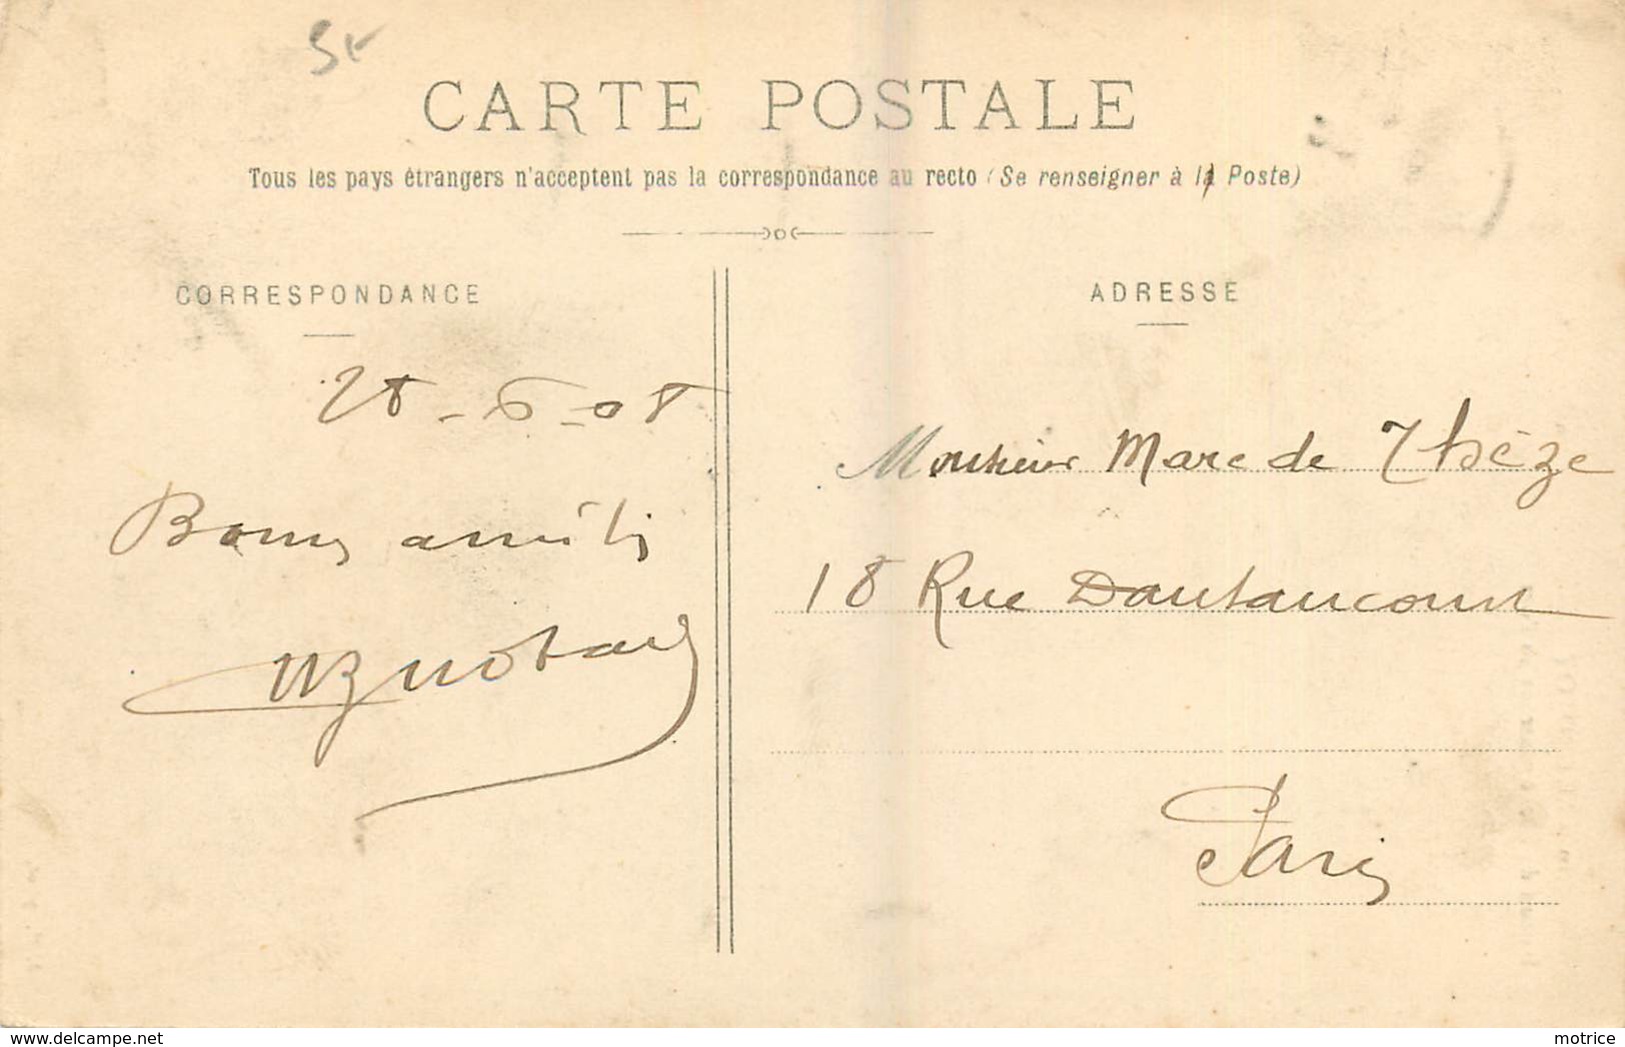 5f
CARTE POSTALE
Tous les pays étrangers n'acceptent pas la correspondance au recto (Se renseigner à la Poste)
CORRESPONDANCE
28-6-08
Bonnes amitiés
ADRESSE
Monsieur Marc de Thèze
18 Rue Dautancourt
Paris
www.delcampe.net
motrice